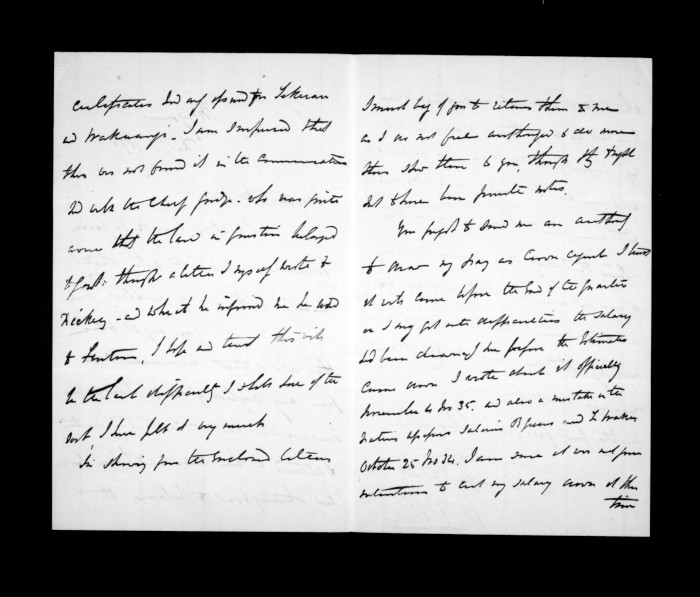 certificates did not for
and I am surprised that
this was not found out in the communication
did with the Chief Judge - who was quite
aware that the land in question belonged
to Govt: through a letter I myself wrote to
Dickey - and what he informed me he said
to Fenton, I hope and trust this will
be the last difficulty I shall have of the
sort, I have felt it very much
In showing you the enclosed letters
I must beg of you to return them to me
as I do not feel authorized to do more
than show them to you, though they might
not to have been private notes.
You forgot to send me an authority
to draw my pay as Crown agent I trust
it will come before the End of the quarter
or I may get into difficulties the salary
had been drawing I see before the Estimates
came down I wrote about it officially
November 4 No 35. and also a mistake in the
salaries Officers and
October 25 No 34. I am sure it was not your
intention to cut my salary down at this
time